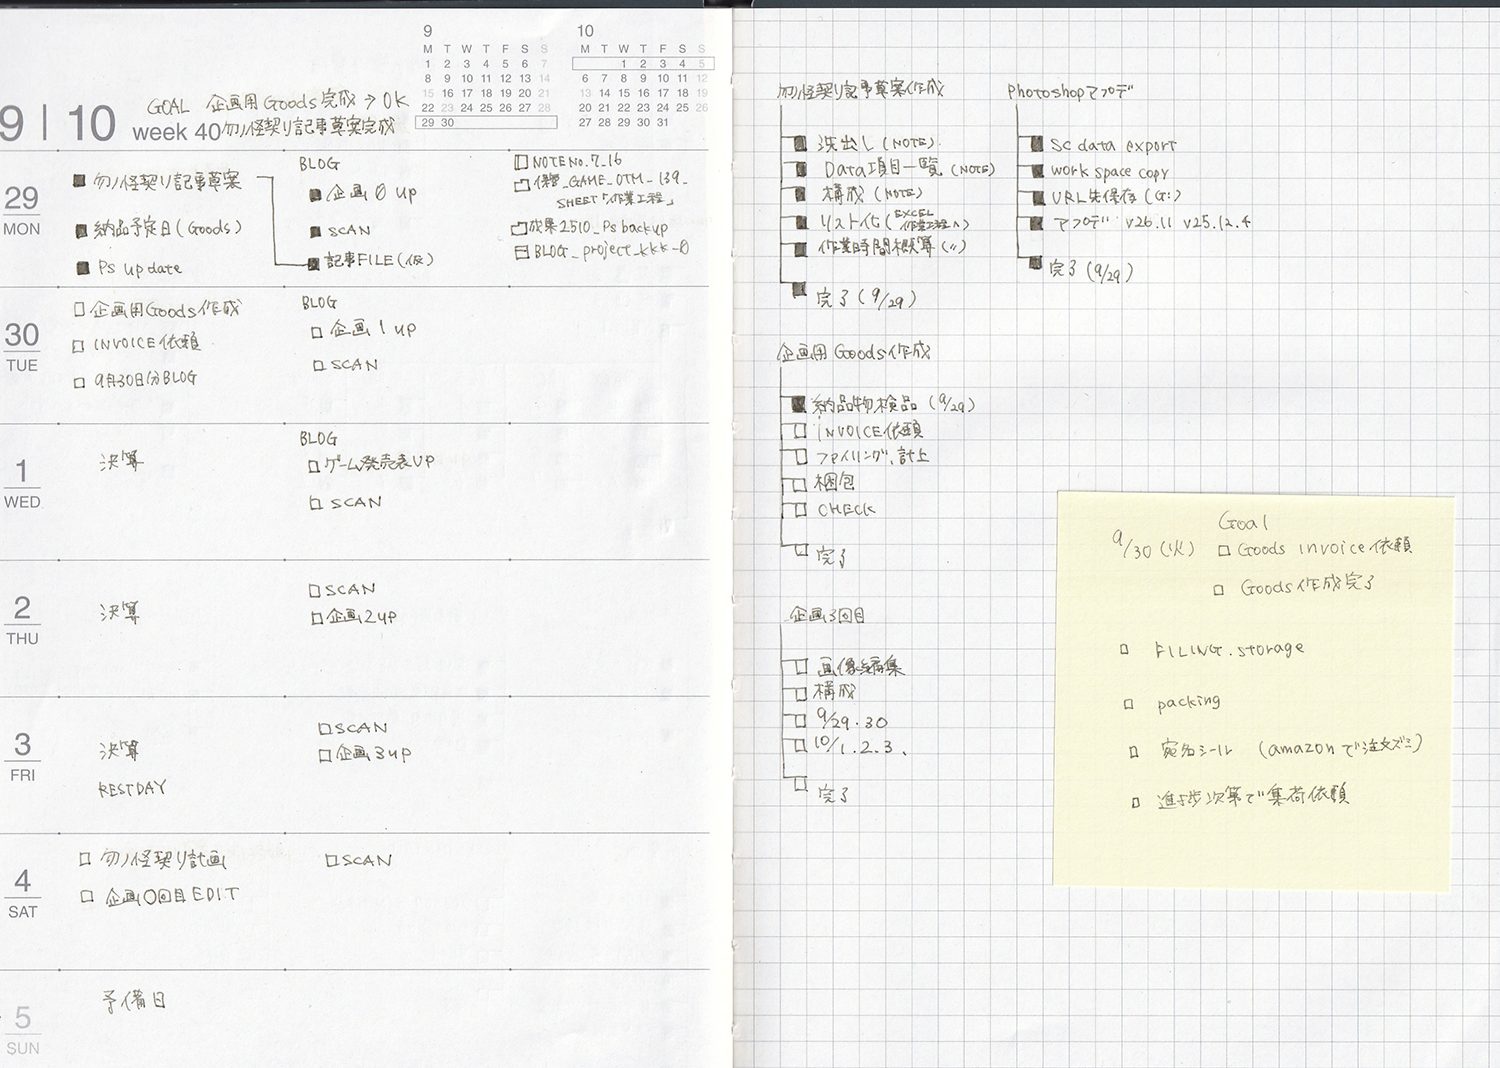 9 | 10
GOAL 企画用Goods完成→OK
week 40 勿ノ怪契り記事草案完成
9
M T W T F S S
1 2 3 4 5 6 7
8 9 10 11 12 13 14
15 16 17 18 19 20 21
22 23 24 25 26 27 28
29 30
10
M T W T F S S
1 2 3 4 5
6 7 8 9 10 11 12
13 14 15 16 17 18 19
20 21 22 23 24 25 26
27 28 29 30 31
29
MON
■ 勿ノ怪契り記事草案
■ 納品予定日(Goods)
■ Ps update
BLOG
■ 企画0up
■ SCAN
■ 記事FILE(仮)
NOTE No.7_16
_GAME_OTM_139_
SHEET「作業工程」
成果2510_Ps backup
BLOG_project_kkk_0
30
TUE
□ 企画用Goods作成
□ INVOICE依頼
□ 9月30日分BLOG
BLOG
□ 企画1up
□ SCAN
1
WED
決算
BLOG
□ ゲーム発売表UP
□ SCAN
2
THU
決算
□ SCAN
□ 企画2up
3
FRI
決算
RESTDAY
□ SCAN
□ 企画3up
4
SAT
□ 勿ノ怪契り計画
□ 企画0回目EDIT
□ SCAN
5
SUN
予備日
勿ノ怪契り記事草案作成
■ 洗出し(NOTE)
■ Data項目一覧(NOTE)
■ 構成(NOTE)
■ リスト化(EXCEL作業工程へ)
■ 作業時間概算(〃)
■ 完了(9/29)
Photoshopアプデ
■ SC data export
■ work space copy
■ URL先保存(G:)
■ アプデ v26.11 v25.12.4
■ 完了(9/29)
企画用Goods作成
■ 納品物検品(9/29)
□ INVOICE依頼
□ ファイリング、計上
□ 梱包
□ CHECK
□ 完了
企画3回目
□ 画像編集
□ 構成
□ 9/29.30
□ 10/1.2.3.
□ 完了
Goal
9/30(火) □ Goods invoice依頼
□ Goods作成完了
□ FILING.storage
□ packing
□ 宛名シール (amazonで注文ズミ)
□ 進歩次第で集荷依頼